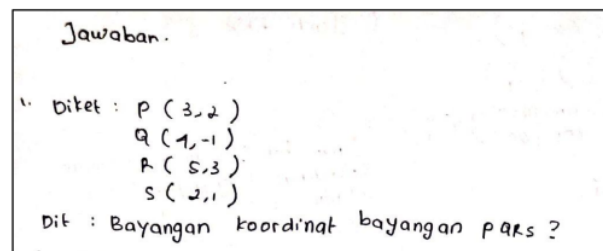 Jawaban.
1. Diket : P ( 3,2 )
Q ( 1,-1 )
R ( 5,3 )
S ( 2,1 )
Dit : Bayangan koordinat bayangan PQRS ?